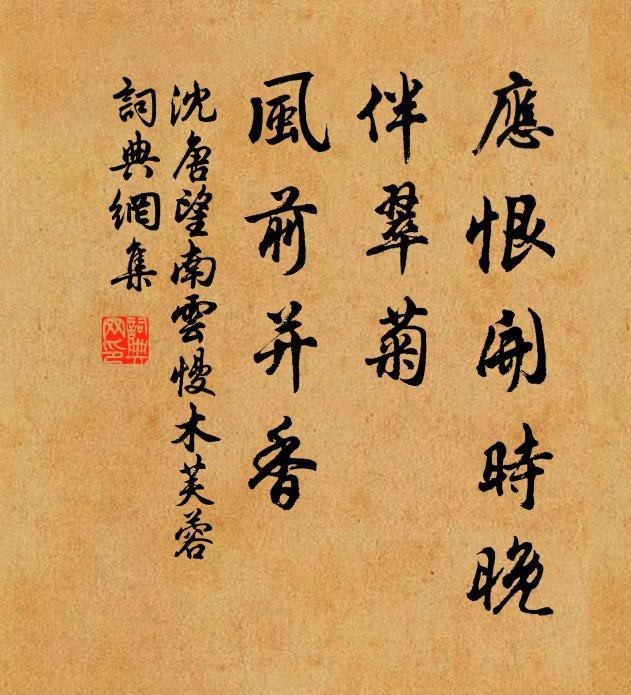 應恨開時晚
伴翠菊
風前并香
沈唐望南雲慢木芙蓉
詞典網集
詞典
网印